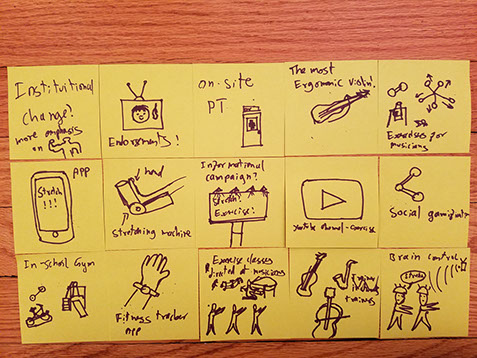 Institutional
change?
more emphasis
on
Endorsments!
on-site
PT
The most
Ergonomic violin!
Exercises for
musicians
APP
Stretch
!!!
hand
Stretching machine
Informational
campaign?
Stretch!
Exercise!
Youtube channel-exercise
Social
In-school Gym
Fitness tracker
app
Exercise classes
directed at musicians
Brain control